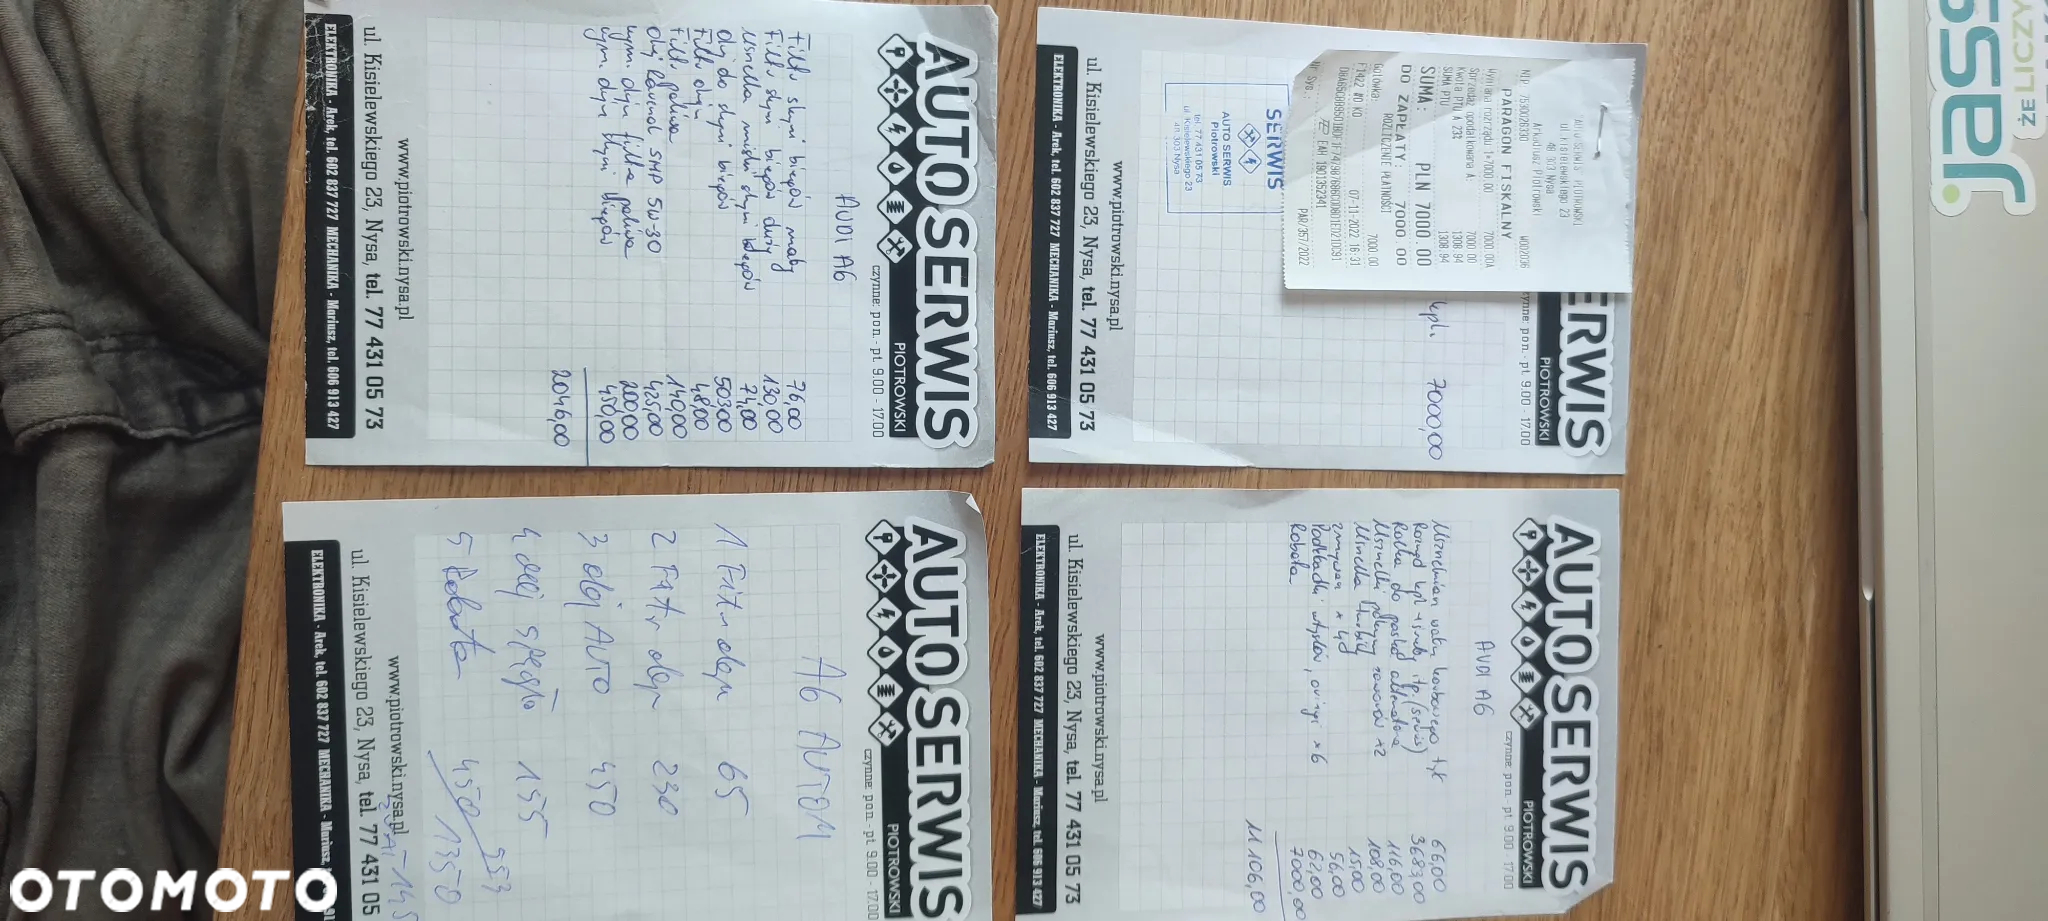 AUTOSERWIS
PIOTROWSKI
czynne: pon. - pt. 9.00 - 17.00
AUDI A6
Filtr skrzyni biegów mały 76,00
Filtr skrzyni biegów duży 130,00
Uszczelka miski skrzyni biegów 74,00
Olej do skrzyni biegów 503,00
Filtr oleju 48,00
Filtr paliwa 140,00
Olej Ravenol SMP 5W-30 425,00
wym. oleju filtra paliwa 200,00
wym. oleju skrzyni biegów 450,00
2046,00
www.piotrowski.nysa.pl
ul. Kisielewskiego 23, Nysa, tel. 77 431 05 73
ELEKTRONIKA - Arek, tel. 602 837 727 MECHANIKA - Mariusz, tel. 606 913 427
ERWIS
PIOTROWSKI
czynne: pon. - pt. 9.00 - 17.00
kpl. 7000,00
AUTO SERWIS PIOTROWSKI
ul.Kisielewskiego 23
48-307 Nysa
Arkadiusz Piotrowski
W002036
PARAGON FISKALNY
Wymiana rozrządu 1×7000,00 7000,00A
Sprzedaż opodatkowana A: 7000,00
Kwota PTU A 23% 1308,94
SUMA PTU 1308,94
SUMA: PLN 7000.00
DO ZAPŁATY: 7000.00
ROZLICZENIE PŁATNOŚCI
Gotówka: 7000,00
07-11-2022 16:31
EAW 1901352341
Nr Sys.: PAR/357/2022
SERWIS
AUTO SERWIS
Piotrowski
tel. 77 431 05 73
ul. Kisielewskiego 23
48-303 Nysa
www.piotrowski.nysa.pl
ul. Kisielewskiego 23, Nysa, tel. 77 431 05 73
ELEKTRONIKA - Arek, tel. 602 837 727 MECHANIKA - Mariusz, tel. 606 913 427
AUTOSERWIS
PIOTROWSKI
czynne: pon. - pt. 9.00 - 17.00
A6 AUTOM
1 Filtr oleju 65
2 Filtr oleju 230
3 olej AUTO 450
4 olej 155
5 Robota 450
1350
www.piotrowski.nysa.pl
ul. Kisielewskiego 23, Nysa, tel. 77 431 05
ELEKTRONIKA - Arek, tel. 602 837 727 MECHANIKA - Mariusz,
AUTOSERWIS
PIOTROWSKI
czynne: pon. - pt. 9.00 - 17.00
AUDI A6
Uszczelniacz wału korbowego tył 66,00
Rozrząd kpl + śruby itp (serwis) 3683,00
Rolka do paska alternatora 116,00
Uszczelki pokrywy zaworów x2 108,00
Uszczelka turbiny 15,00
zmywacz x 4 56,00
Podkładki wtysków, oringi x6 62,00
Robota 7000,00
11106,00
www.piotrowski.nysa.pl
ul. Kisielewskiego 23, Nysa, tel. 77 431 05 73
ELEKTRONIKA - Arek, tel. 602 837 727 MECHANIKA - Mariusz, tel. 606 913 427
ŻE LICZY
OTOMOTO